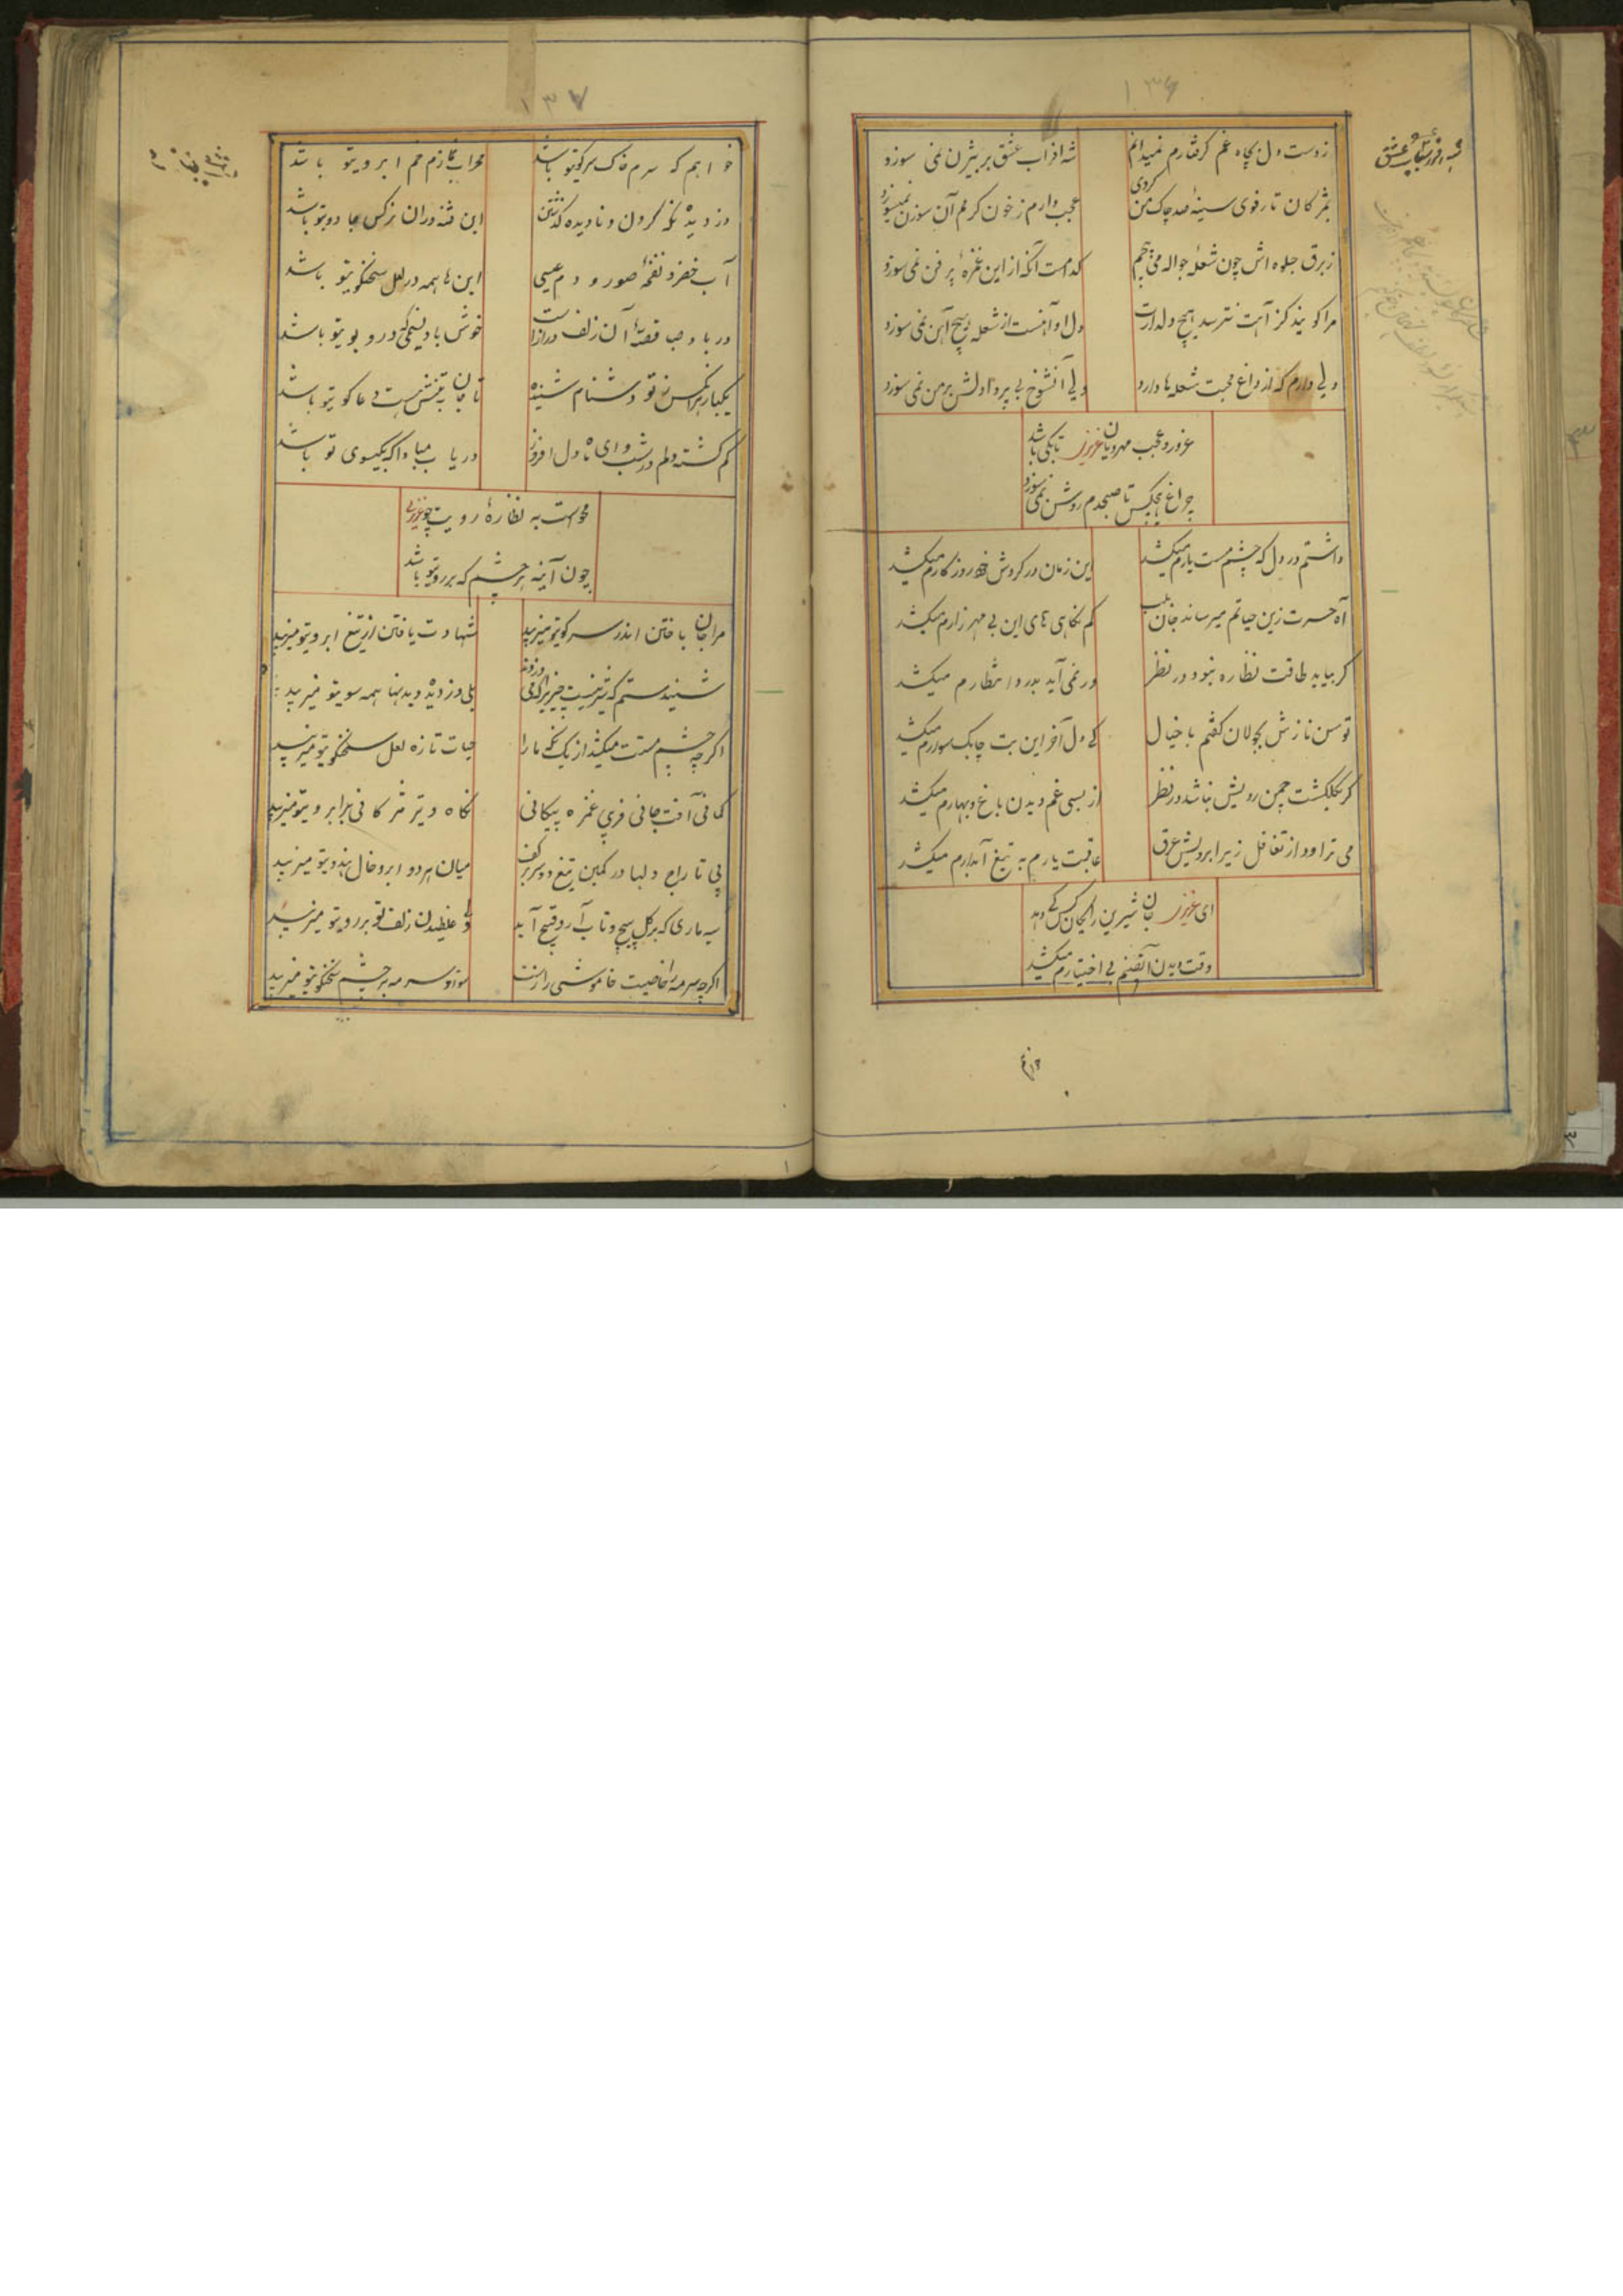 ۱۳۶
ز دست دل بچاه غم گرفتارم نمیدانم
شه افراسیاب عشق بر بیژن نمی سوزد
بمژکان تا رفوی سینهٔ صد چاک من کردی
عجب دارم ز خون کرمم آن سوزن نمیسوزد
ز برق جلوه اش چون شعلهٔ جواله می پیچم
کدامست آنکه از این غمزهٔ پر فن نمی سوزد
مرا کویند کز آهت نترسد هیچ دلدارت
دل او آهنست از شعله هیچ آهن نمی سوزد
دلی دارم که از داغ محبت شعله ها دارد
ولی آنشوخ بی پروا دلش بر من نمی سوزد
غرور و عجب مهرویان عزیزی تا بکی باشد
چراغ هیچکس تا صبحدم روشن نمی سوزد
داشتم در دل که چشم مست یارم میکشد
این زمان در کردش خود روزکارم میکشد
آه حسرت زین حیاتم میرساند جان بلب
کم نکاهی های این بی مهر زارم میکشد
کر بیاید طاقت نظاره نبود در نظر
ور نمی آید بدرد انتظارم میکشد
توسن نازش بجولان کفتم با خیال
کی دل آخر این بت چابک سوارم میکشد
کر بکلکشت چمن رویش نباشد در نظر
از بسی غم دیدن باغ و بهارم میکشد
می تراود از تغافل زیر ابرویش عرق
عاقبت یارم به تیغ آبدارم میکشد
ای عزیزی جان شیرین رایکان کس کی دهد
وقت دیدن آن صنم بی اختیارم میکشد
خواهم
۱۳۷
خواهم که سرم خاک سر کویتو باشد
محراب نمازم خم ابرویتو باشد
دزدیده نکه کردن و نادیده گذشتن
این فتنه در ان نرکس جادویتو باشد
آب خضر و نفخهٔ صور و دم عیسی
این ها همه در لعل سخنکویتو باشد
در باد صبا قصهٔ آن زلف درازست
خوش باد نسیمی که درو بویتو باشد
یکبار هر آنکس ز تو دشنام شنیده
تا جان به تنش هست دعا کویتو باشد
کم کشته دلم در شب و ای ماه دل افروز
دریاب مبادا که بکیسوی تو باشد
محوست به نظارهٔ رویت چو عزیزی
چون آینه هر چشم که بر رویتو باشد
مرا جان باختن اندر سر کویتو میزیبد
شهادت یافتن از تیغ ابرویتو میزیبد
بلی دزدیده دیدنها همه سویتو میزیبد
اکرچه چشم مستت میکشد از یک نکه ما را
حیات تازه لعل سخنکویتو میزیبد
کمانی آفت جانی فریب غمزه پیکانی
نکاه و تیر مژکانی برابرویتو میزیبد
پی تاراج دلها در کمین تیغ دو سر بر کف
میان هر دو ابرو خال هندویتو میزیبد
سیه ماری که بر کل پیچ و تاب آرد قبیح آید
ولی غلطیدن زلف تو بر رویتو میزیبد
اکرچه سرمه را خاصیت خاموشی رازست
سواد سرمه بر چشم سخنکویتو میزیبد